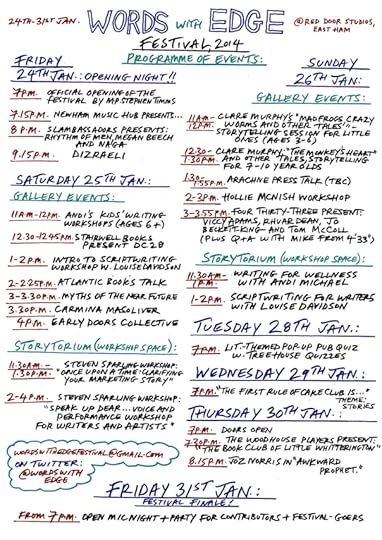 24TH-31ST JAN.
WORDS WITH EDGE
@ RED DOOR STUDIOS,
EAST HAM
FESTIVAL 2014
PROGRAMME OF EVENTS:
FRIDAY
24TH JAN.: OPENING NIGHT!!
7PM. OFFICIAL OPENING OF THE
FESTIVAL BY MP STEPHEN TIMMS
7.15PM. NEWHAM MUSIC HUB PRESENTS...
8PM. SLAMBASSADORS PRESENTS:
RHYTHM OF MEN, MEGAN BEECH
AND NAGA
9.15PM. DIZRAELI
SATURDAY 25TH JAN.:
GALLERY EVENTS:
11AM-12PM. ANDI'S KIDS' WRITING
WORKSHOPS (AGES 6+)
12.30-12.45PM. STAIRWELL BOOKS
PRESENT DC28
1-2PM. INTRO TO SCRIPTWRITING
WORKSHOP W. LOUISE DAVIDSON
2-2.25PM. ATLANTIC BOOKS TALK
3-3.30PM. MYTHS OF THE NEAR FUTURE
3.30PM. CARMINA MASOLIVER
4PM. EARLY DOORS COLLECTIVE
STORYTORIUM (WORKSHOP SPACE):
11.30AM-1.30PM. STEVEN SPARLING WORKSHOP:
"ONCE UPON A TIME: CLARIFYING
YOUR MARKETING STORY"
2-4PM. STEVEN SPARLING WORKSHOP:
"SPEAK UP DEAR... VOICE AND
PERFORMANCE WORKSHOP
FOR WRITERS AND ARTISTS"
WORDSWITHEDGEFESTIVAL@GMAIL.COM
ON TWITTER:
@WORDSWITH
EDGE
SUNDAY
26TH JAN:
GALLERY EVENTS:
11AM-12PM CLARE MURPHY'S "MAD FROGS, CRAZY
WORMS AND OTHER TALES" -
STORYTELLING SESSION FOR LITTLE
ONES (AGES 3-6)
12.30-1.30PM CLARE MURPHY: "THE MONKEY'S HEART"
AND OTHER TALES, STORYTELLING
FOR 7-10 YEAR OLDS
ARACHNE PRESS TALK (TBC)
2-3PM. HOLLIE MCNISH WORKSHOP
3-3.55PM: FOUR THIRTY-THREE PRESENT:
VICKY ADAMS, RHVAR DEAN, JO
BECKETT-KING AND TOM MCCOLL
(PLUS Q+A WITH MIKE FROM 4'33")
STORYTORIUM (WORKSHOP SPACE):
11.30AM-1PM. WRITING FOR WELLNESS
WITH ANDI MICHAEL
1-2PM. SCRIPTWRITING FOR WRITERS
WITH LOUISE DAVIDSON
TUESDAY 28TH JAN:
7PM. LIT-THEMED POP-UP PUB QUIZ
W. TREEHOUSE QUIZZES
WEDNESDAY 29TH JAN:
7PM. "THE FIRST RULE OF CAKE CLUB IS..."
THEME:
STORIES
THURSDAY 30TH JAN.:
7PM. DOORS OPEN
7.30PM. THE WOODHOUSE PLAYERS PRESENT:
"THE BOOK CLUB OF LITTLE WHITTERINGTON"
8.15PM. JOZ NORRIS IN "AWKWARD
PROPHET."
FRIDAY 31ST JAN.:
FESTIVAL FINALE!
FROM 7PM. OPEN MIC NIGHT + PARTY FOR CONTRIBUTORS + FESTIVAL-GOERS